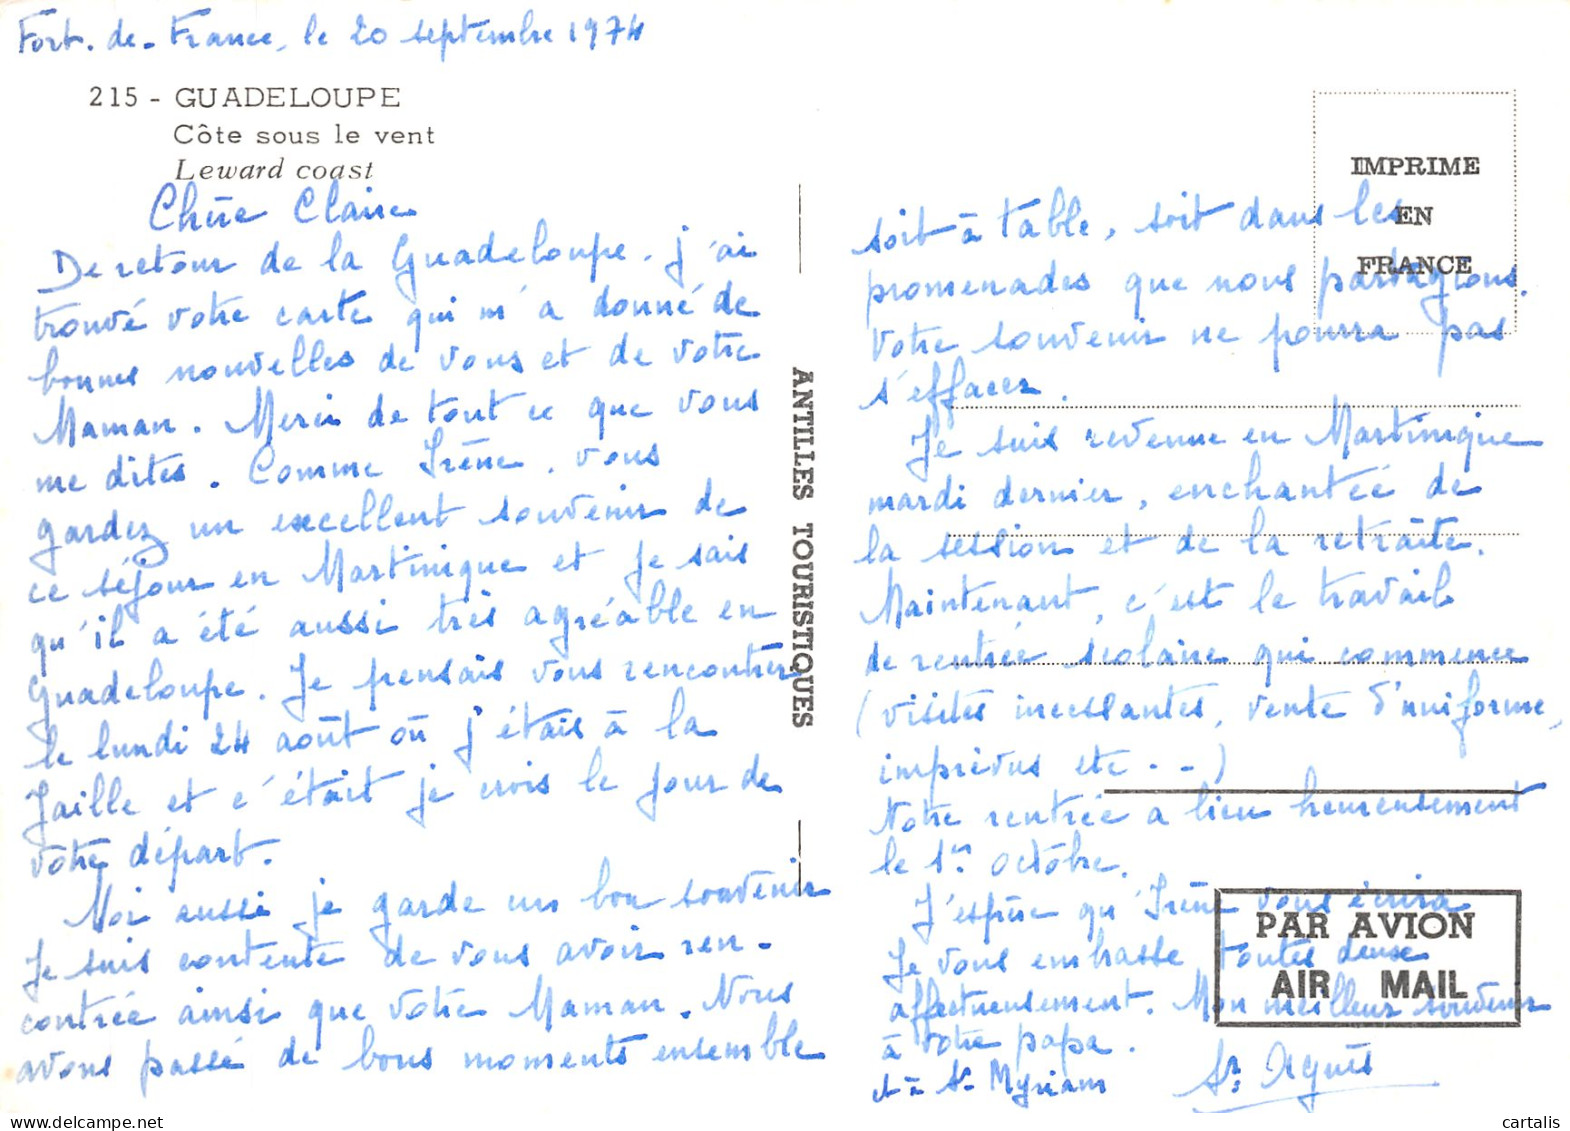 Fort-de-France, le 20 septembre 1974
215 - GUADELOUPE
Côte sous le vent
Leward coast
Chère Claire
De retour de la Guadeloupe, j'ai
trouvé votre carte qui m'a donné de
bonnes nouvelles de vous et de votre
Maman. Merci de tout ce que vous
me dites. Comme Irène, vous
gardez un excellent souvenir de
ce séjour en Martinique et je sais
qu'il a été aussi très agréable en
Guadeloupe. Je pensais vous rencontrer
le lundi 24 août où j'étais à la
Jaille et c'était je crois le jour de
votre départ.
Moi aussi je garde un bon souvenir
Je suis contente de vous avoir ren-
contrée ainsi que votre Maman. Nous
avons passé de bons moments ensemble
ANTILLES TOURISTIQUES
IMPRIME
EN
FRANCE
soit à table, soit dans les
promenades que nous partagions.
Votre souvenir ne pourra pas
s'effacer.
Je suis revenue en Martinique
mardi dernier, enchantée de
la session et de la retraite.
Maintenant, c'est le travail
de rentrée scolaire qui commence
(visites incessantes, vente d'uniforme,
imprévus etc...)
Notre rentrée a lieu heureusement
le 1er octobre.
J'espère qu'Irène vous écrira
Je vous embrasse toutes deux
affectueusement. Mon meilleur souvenir
à votre papa.
et à Sr Myriam
Sr Agnès
PAR AVION
AIR MAIL
cartalis